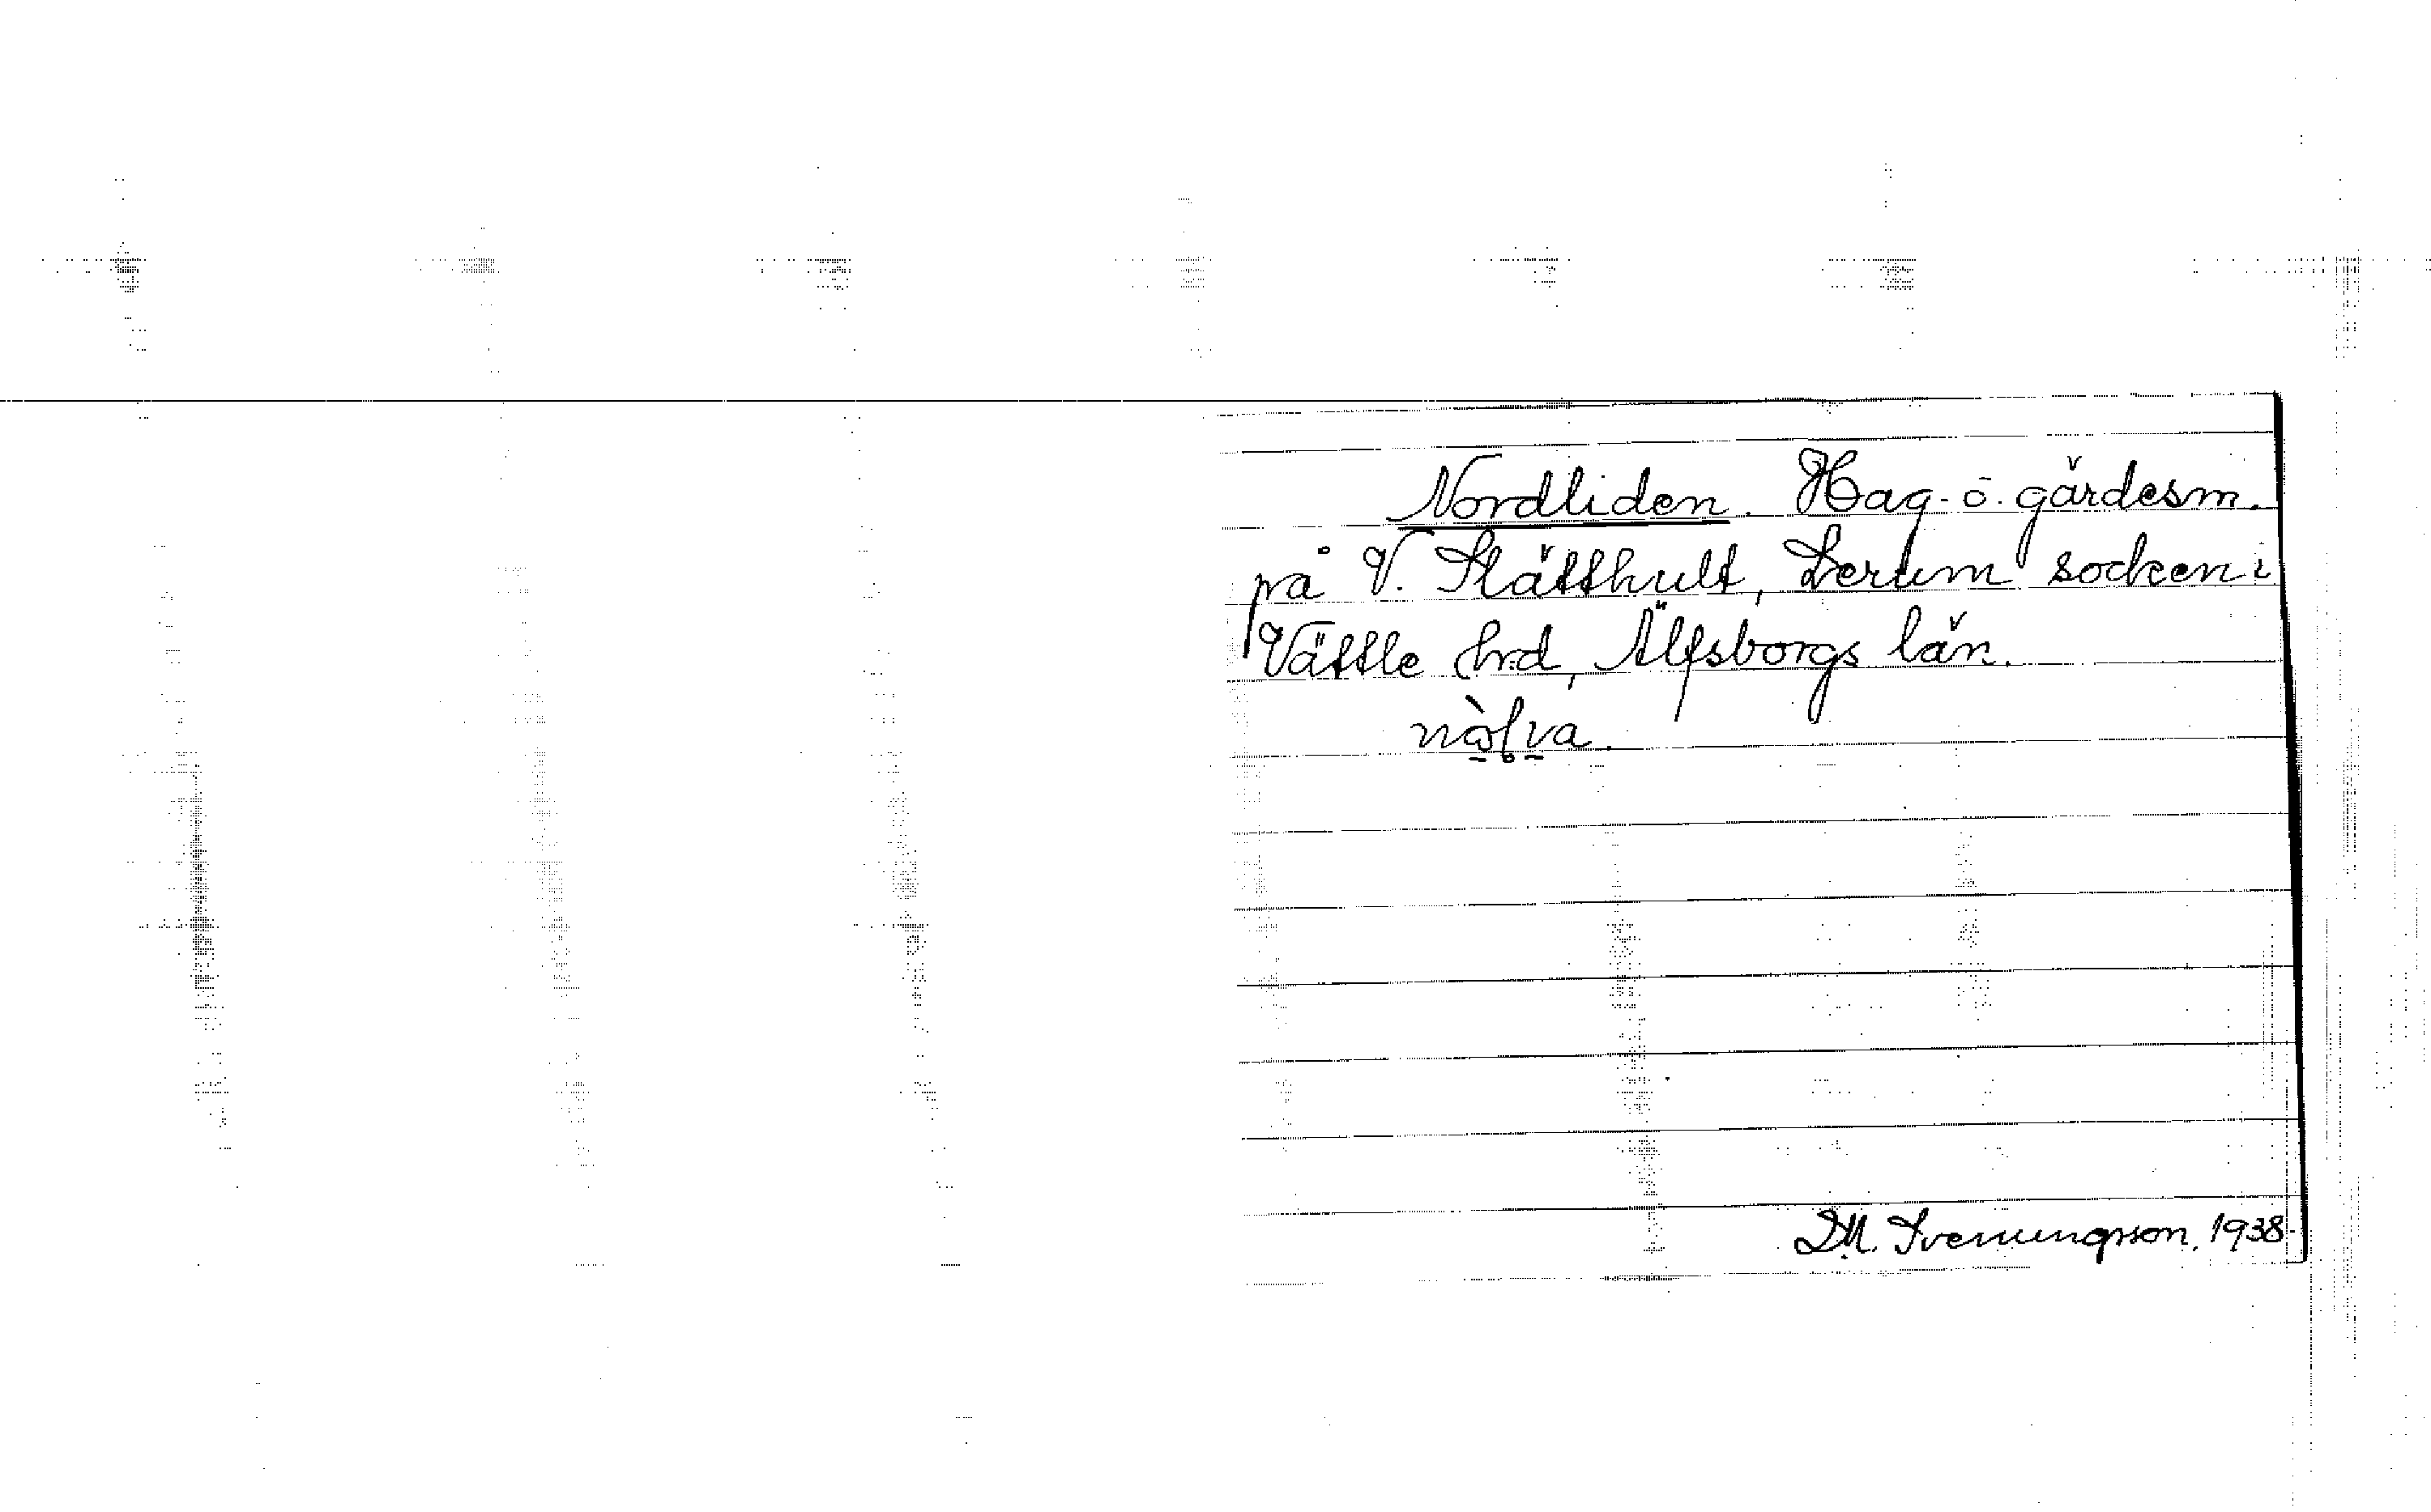 Nordliden. Hag- o. gärdesm.
på V. Slätthult, Lerum socken i
Vättle hrd, Älfsborgs län.
D.M. Svenungsson. 1938